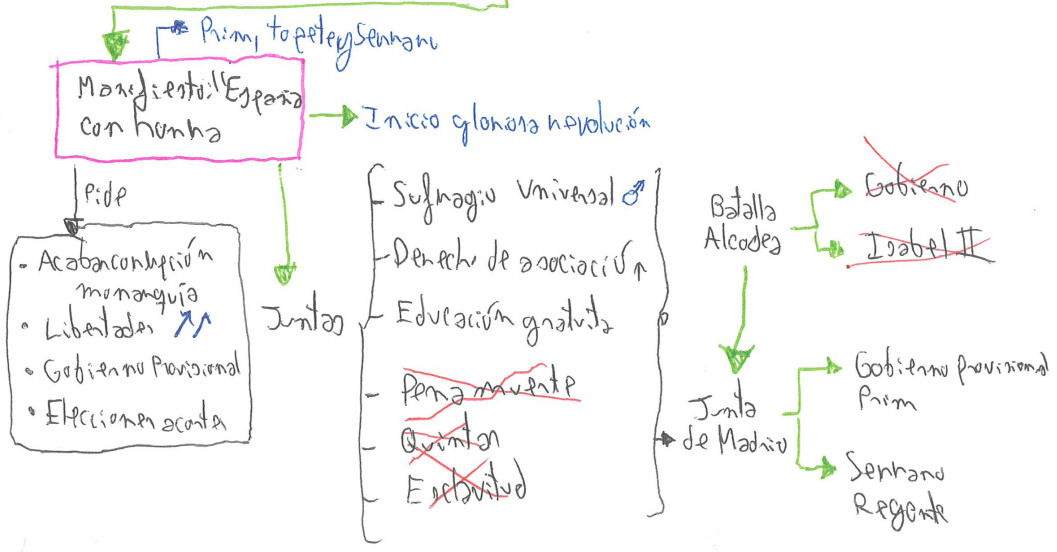 Prim, topete y Serrano
Manifiesto: "España
con honra
Inicio gloriosa revolución
Pide
- Acabar con repción
monarquía
• Libertades ↑↑
• Gobierno Provisional
• Elecciones a cortes
Juntas
- Sufragio Universal ♂
- Derecho de asociación
- Educación gratuita
- Pena muerte
- Quintas
- Esclavitud
Batalla
Alcodea
Gobierno
Isabel II
Junta
de Madrid
Gobierno provisional
Prim
Serrano
Regente